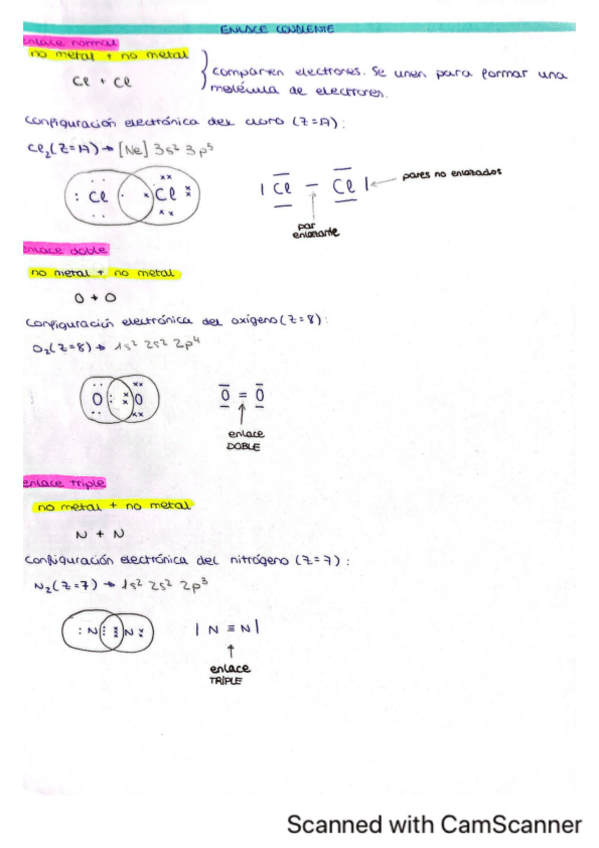 ENLACE COVALENTE
enlace normal
no metal + no metal
Cl + Cl
comparten electrones. Se unen para formar una
molécula de electrones.
Configuración electrónica del cloro (Z=17):
Cl₂(Z=17) → [Ne] 3s² 3p⁵
: Cl · × Cl ×
| Cl – Cl | ← pares no enlazados
par
enlazante
enlace doble
no metal + no metal
O + O
Configuración electrónica del oxígeno (Z=8):
O₂(Z=8) → 1s² 2s² 2p⁴
O : × O
O = O
enlace
DOBLE
enlace triple
no metal + no metal
N + N
Configuración electrónica del nitrógeno (Z=7):
N₂(Z=7) → 1s² 2s² 2p³
: N ⋮ × N ×
| N ≡ N |
enlace
TRIPLE
Scanned with CamScanner